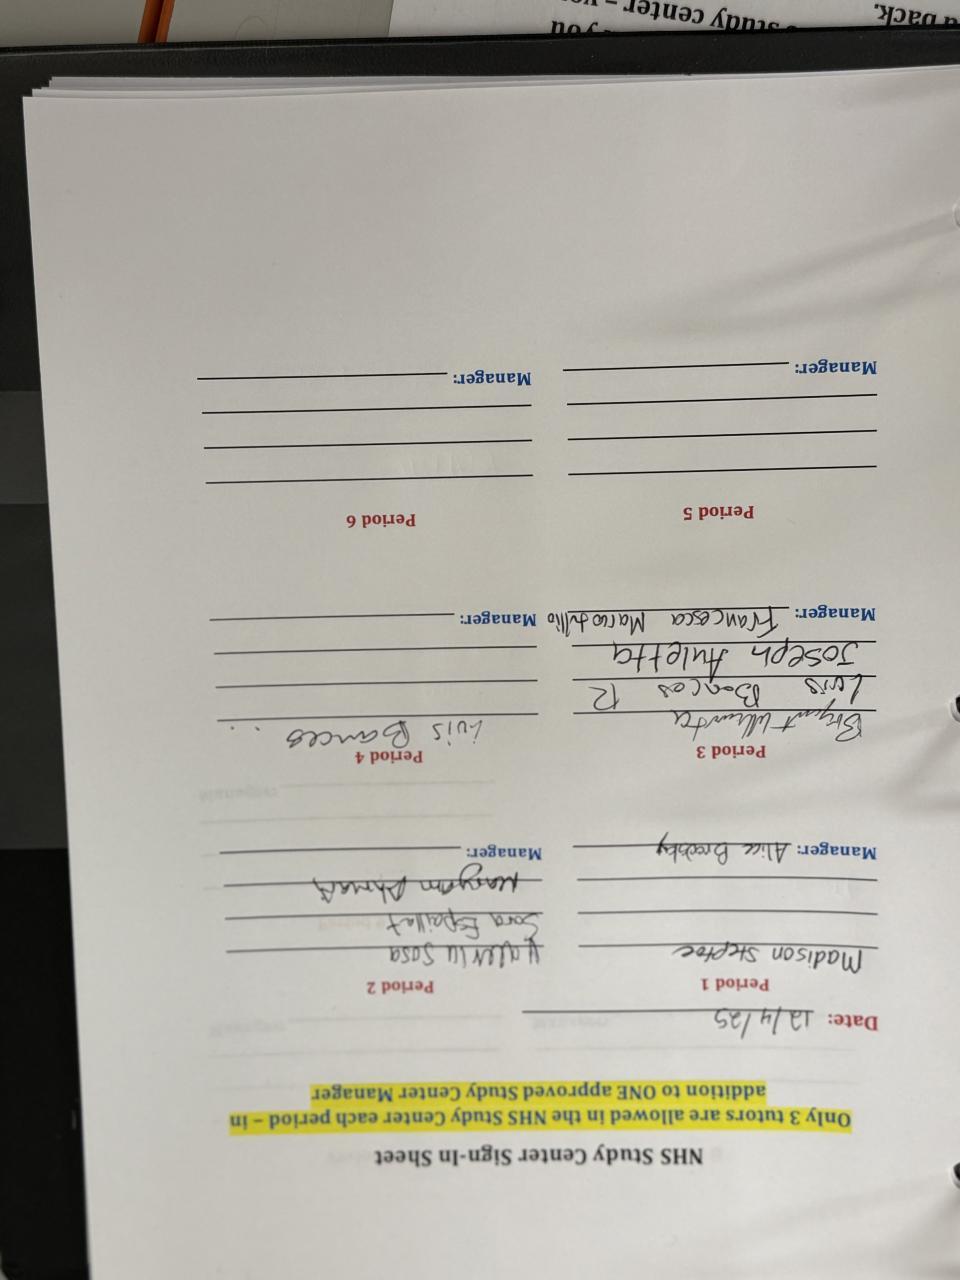 NHS Study Center Sign-In Sheet
Only 3 tutors are allowed in the NHS Study Center each period – in
addition to ONE approved Study Center Manager
Date: 12/4/25
Period 1
Madison Steptoe
Manager: Alice Brodsky
Period 2
Valeria Sosa
Sara Espaillat
Maryam Ahmad
Manager:
Period 3
Bryant
Luis Bances 12
Joseph Auletta
Manager: Francesca
Period 4
Luis Bances
Manager:
Period 5
Manager:
Period 6
Manager:
study center –
you
back.